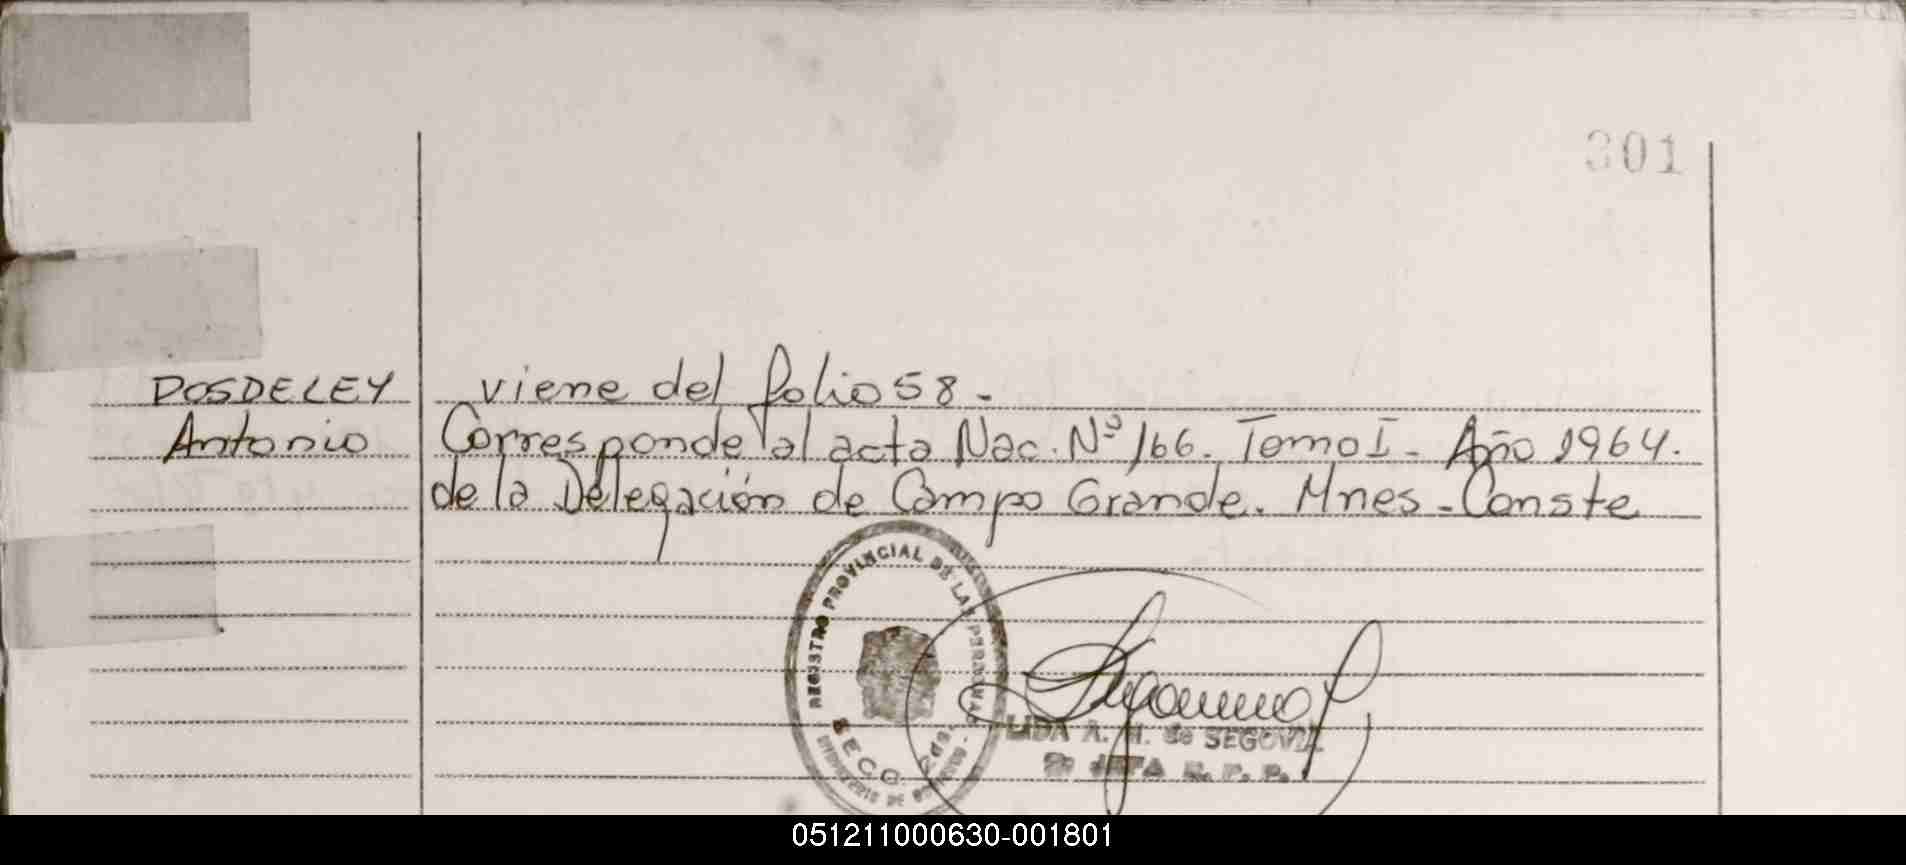 301
DOSDELEY viene del folio 58.-
Antonio Corresponde al acta Nac. Nº 166. Tomo I - Año 1964.
de la Delegación de Campo Grande. Mnes - Conste
REGISTRO PROVINCIAL DE LAS PERSONAS
SECC. 2da.
MINISTERIO DE GOBIERNO
LIDA A. H. de SEGOVIA
2º JEFA R. P. P.
051211000630-001801